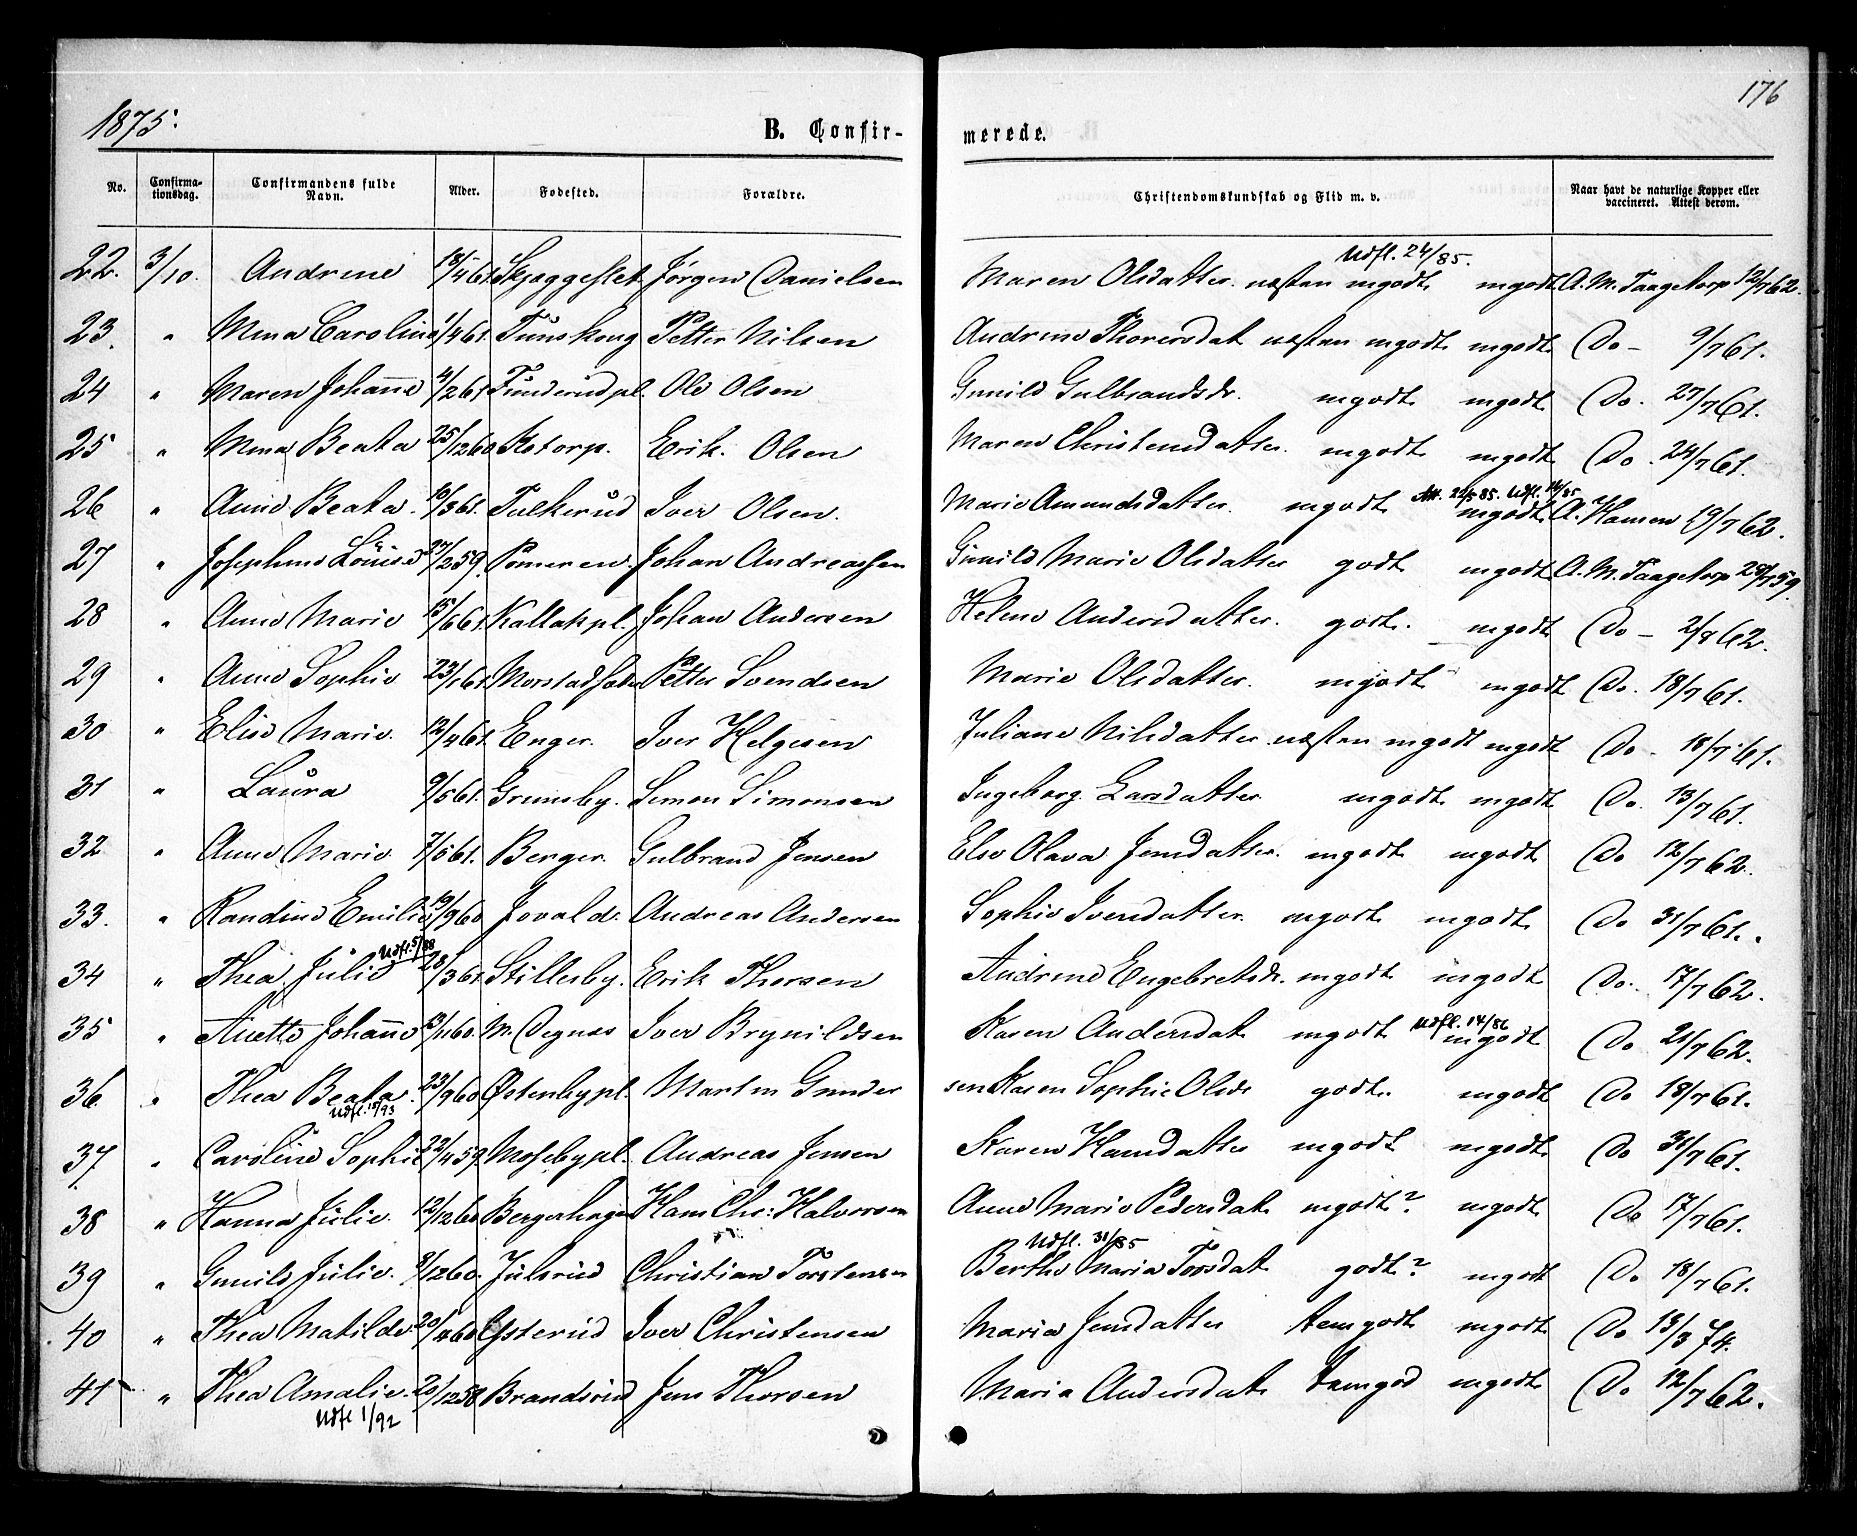 176
1875.
B. Confir- merede.
No. Confirma-tionsdag. Confirmandens fulde Navn. Alder. Fødested. Forældre. Christendomskundskab og Flid m. v. Naar havt de naturlige Kopper eller vaccineret. Attest derom.
Udfl. 24/85.
22. 3/10. Andrine 18/4 61. Skjaggestet Jørgen Danielsen Maren Olsdatter. næsten mgodt mgodt A. M. Taagetorp 12/7 62.
23. " Mina Caroline 1/4 61. Tunskoug Petter Nilsen Andrine Thorersdat næsten mgodt mgodt Do - 9/7 61.
24 " Maren Johanne 4/2 61 Funderud pl. Ole Olsen Gunild Gulbrandsdr. mgodt mgodt Do. 27/7 61.
25 " Mina Beata 25/12 60 Kstorp. Erik Olsen Maren Christensdatter. mgodt mgodt Do. 24/7 61.
Udfl. 14/85
26 " Anne Beata. 10/3 61. Falkerud Iver Olsen. Marie Amundsdatter. mgodt mgodt A. Hansen 19/7 62.
27 " Josephine Louise 27/2 59. Pomeren. Johan Andreassen Gunild Marie Olsdatter godt mgodt A. M. Taagetorp 28/7 59.
28 " Anne Marie 15/6 61. Kallak pl. Johan Andersen Helene Andersdatter. godt. mgodt Do - 2/8 62.
29 " Anne Sophie 23/1 61. Petter Svendsen Marie Olsdatter. mgodt mgodt Do. 18/7 61.
30 " Elise Marie. 12/4 61. Enger. Iver Helgesen Juliane Nilsdatter næsten mgodt mgodt Do - 18/7 61.
31 " Laura 9/5 61. Grimsby. Simon Simonsen Ingeborg Larsdatter mgodt mgodt Do. 13/7 61.
32 " Anne Marie 7/5 61. Berger. Gulbrand Jensen Else Olava Jensdatter. mgodt mgodt Do 12/7 62.
33. " Randine Emilie 19/9 60 Jovald. Andreas Andersen Sophie Iversdatter. mgodt mgodt Do 31/7 61.
Udfl. 5/88
34 " Thea Julie 28/3 61. Stillesby. Erik Thorsen Andrine Engebretsdr. mgodt mgodt Do. 17/7 62.
Udfl. 14/86
35 " Anette Johanne 3/11 60. M. Degnæs Iver Brynildsen Karen Andersdat mgodt mgodt Do 21/7 62.
36 " Thea Beata. 23/9 60 Østenby pl. Martin Gunder sen Karen Sophie Olsdr godt. mgodt Do 18/7 61.
Udfl. 15/93
37 " Caroline Sophie 22/4 59. Moseby pl. Andreas Jensen Karen Hansdatter mgodt mgodt. Do 31/7 61.
38 " Hanna Julie. 12/12 60 Bergerhagen Hans Chr: Halvorsen Anne Marie Pedersdat mgodt? mgodt Do 17/7 61.
Udfl. 31/85
39 " Gunild Julie. 9/12 60. Julsrud Christian Torstensen Berthe Maria Torsdat godt? mgodt Do 18/7 61.
40 " Thea Matilde. 20/4 60 Østerud Iver Christensen Maria Jensdatter temgodt mgodt Do 13/3 74.
41 " Thea Amalie. 20/12 58 Brandsrud Jens Thorsen Maria Andersdat. temgod mgodt Do 12/7 62.
Udfl 1/92